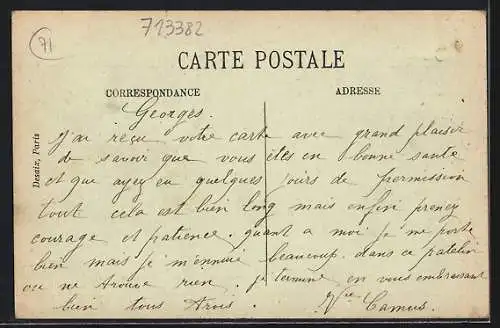 71
713382
CARTE POSTALE
CORRESPONDANCE
ADRESSE
Desaix, Paris
Georges.
J'ai reçu votre carte avec grand plaisir
de savoir que vous êtes en bonne santé
et que ayez eu quelques jours de permission
tout cela est bien long mais enfin prenez
courage et patience. quant a moi je me porte
bien mais je m'ennuie beaucoup. dans ce patelin
ou ne trouve rien. je termine en vous embrassant
bien tous trois. Camus.